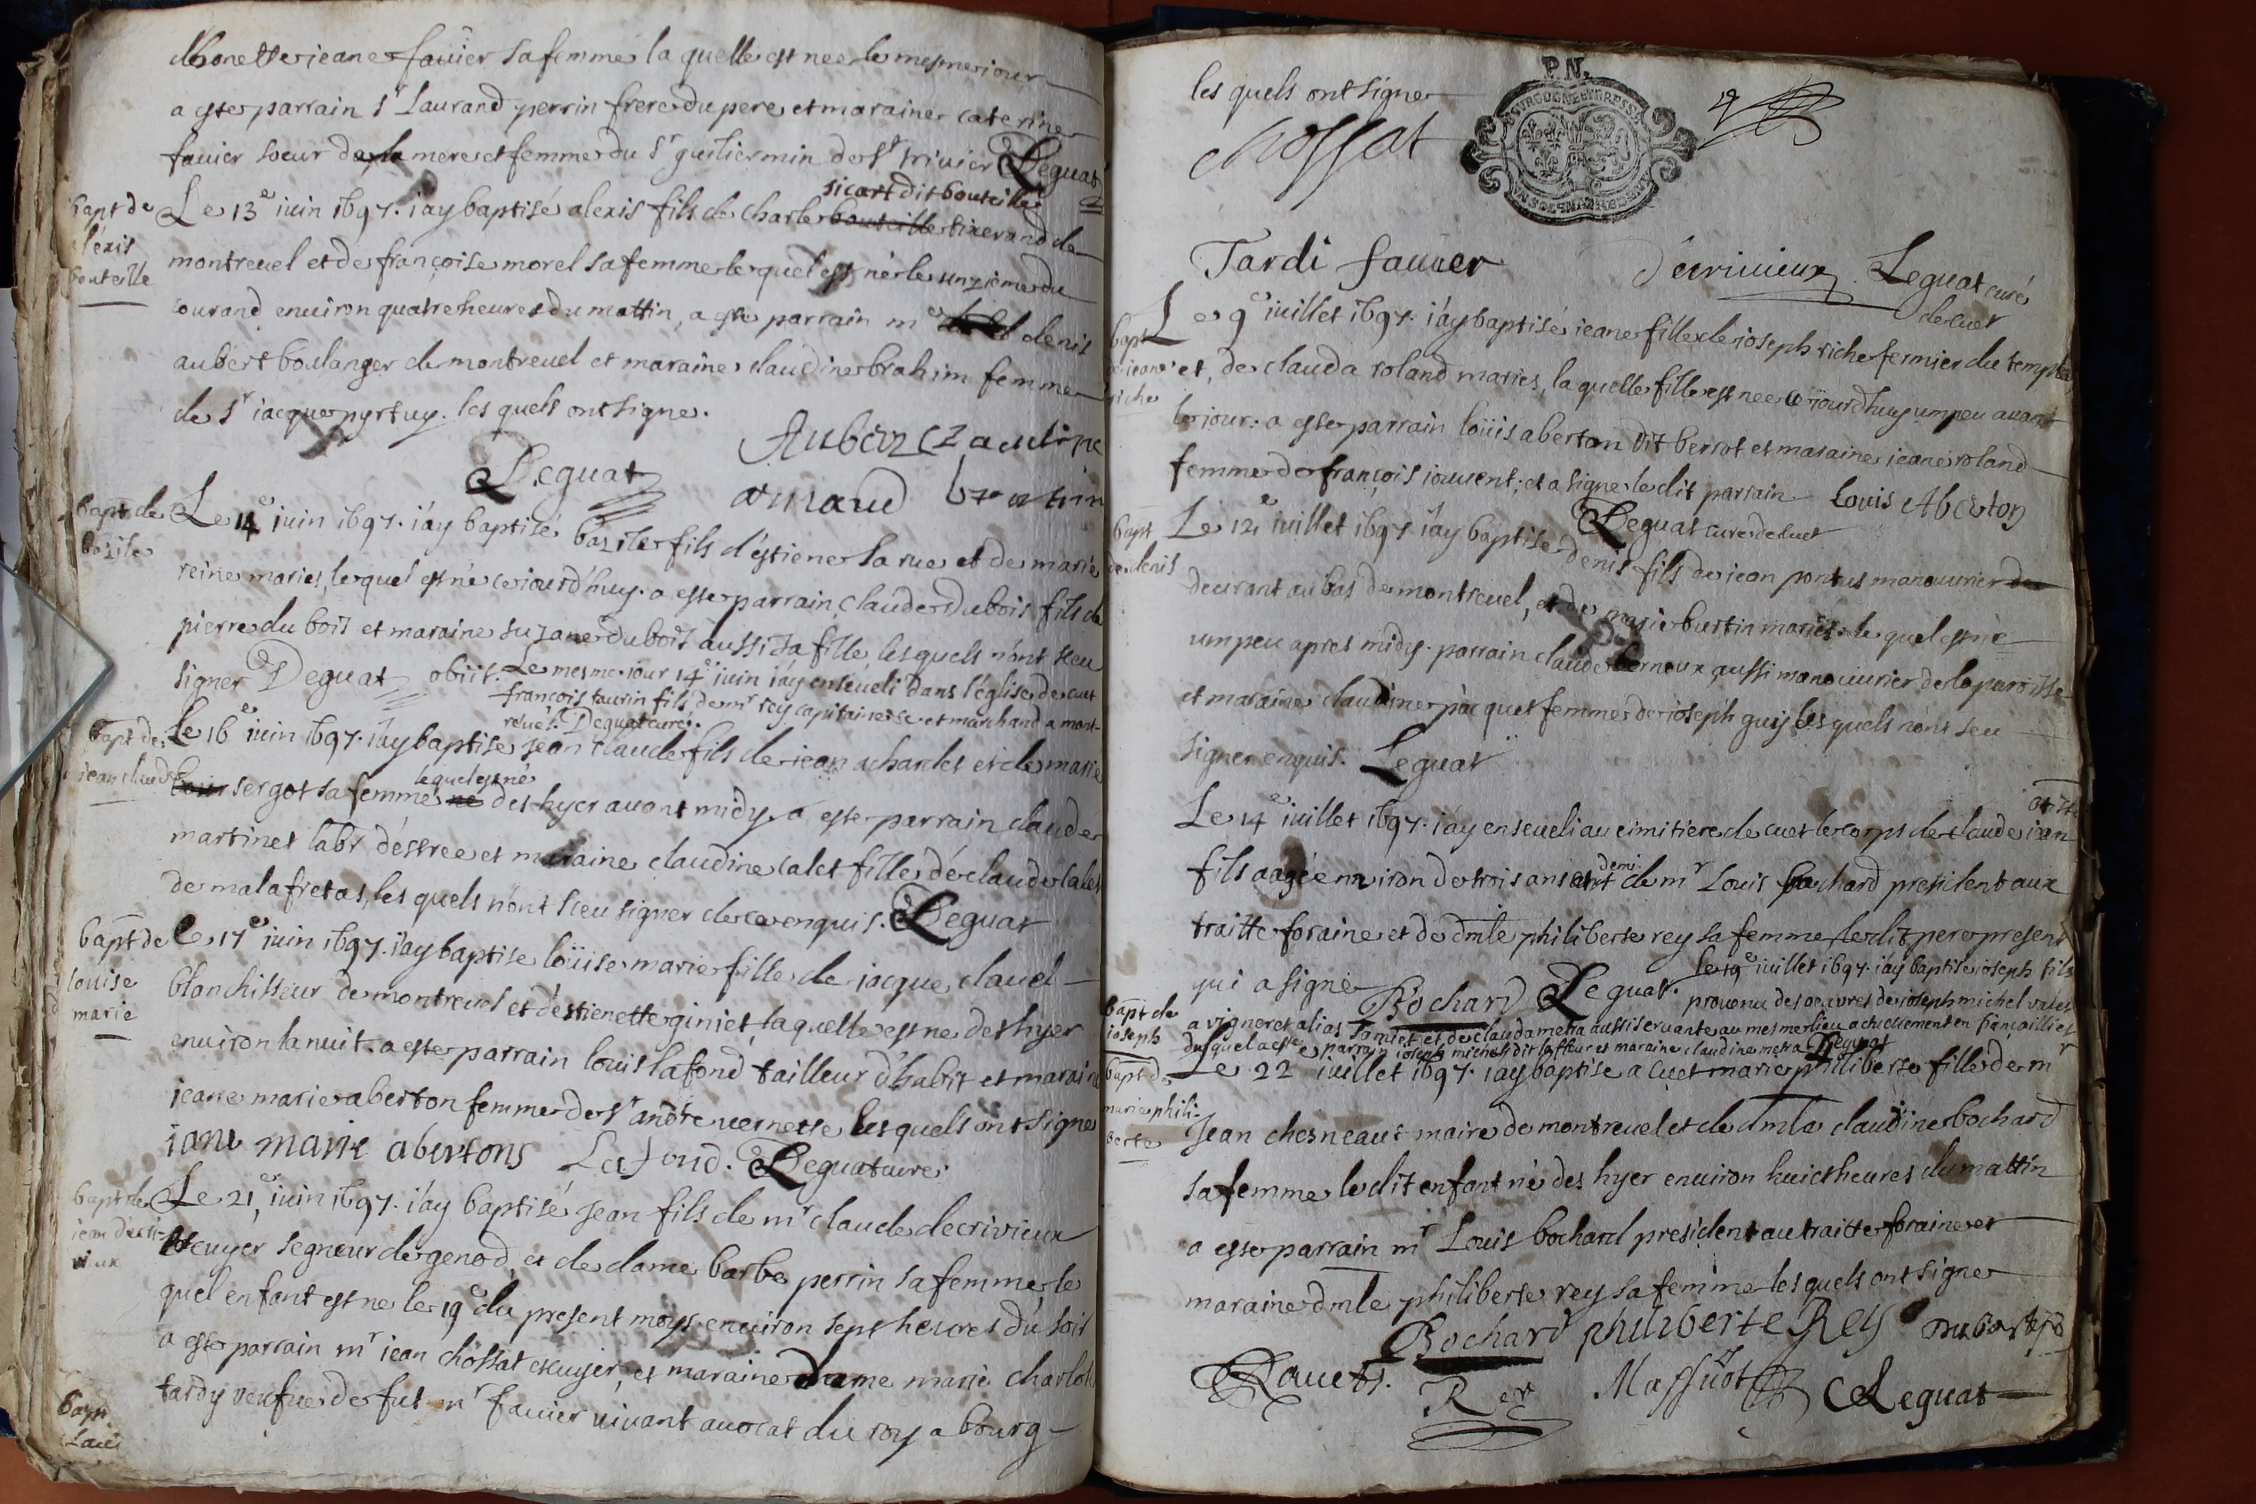 honeste jeane favier sa femme la quelle est nee le mesme jour
a este parrain sr Laurand perrin frere du pere et maraine caterine
favier soeur de la mere et femme du sr guilliermin de st trivier Leguat
bapt de
alexis
bouteille
sicart dit bouteille
Le 13e juin 1697. j'ay baptisé alexis fils de charle bouteille tixerand de
montrevel et de françoise morel sa femme lequel est né le unzieme du
courand environ quatre heures du mattin, a este parrain me denis
aubert boulanger de montrevel et maraine claudine brahim femme
de sr jacque pyrtuy. les quels ont signe.
Auber claudine
Leguat arnaud
bapt de
bazile
Le 14e juin 1697. j'ay baptisé bazile fils d'estiene la rue et de marie
reine maries, lequel est né cejourd'huy. a este parrain claude du bois fils de
pierre du bois et maraine suzane du bois aussi sa fille, les quels n'ont sceu
signer Leguat
obiit. Le mesme jour 14e juin j'ay enseveli dans l'église de cuet
françois taurin fils de mr rey capitaine et marchand a mont-
revel. Leguat curé.
bapt de
jean claude
Le 16e juin 1697. j'ay baptise jean claude fils de jean chardet et de marie
lequel est né
sergot sa femme né des hyer avant midy. a este parrain claude
martinet labr d'estree et maraine claudine calet fille de claude calet
de malafretas, les quels n'ont sceu signer de ce enquis. Leguat
bapt de
louise
marie
Le 17e juin 1697. j'ay baptise loüise marie fille de jacque clavel
blanchisseur de montrevel et d'estienette giniet, la quelle est ne des hyer
environ la nuit. a este parrain louis lafond tailleur d'habit et maraine
jeane marie aberton femme de sr andre vernette les quels ont signe
iane marie abertons Lafond. Leguat curé.
bapt de
jean decri-
vieux
Le 21e juin 1697. j'ay baptisé jean fils de mr claude decrivieux
escuyer segneur de genod, et de dame barbe perrin sa femme le
quel enfant est ne le 19e du present moys environ sept heures du soir
a este parrain mr jean chossat escuyer, et maraine dame marie charlote
tardy veufve de fut mr favier vivant avocat du roy a bourg
bapt
les quels ont signe
P.N.
chossat
Tardi favier Decrivieux Leguat curé
de cuet
bapt
de jeane
riche
Le 9e juillet 1697. j'ay baptisé jeane fille de joseph riche fermier du temple
et, de clauda roland maries, la quelle fille est nee cejourd'huy un peu avant
le jour. a este parrain loüis aberton dit berrot et maraine jeane roland
femme de françois jouvent; et a signe le dit parrain Louis Aberton
Leguat cure de cuet
bapt
de denis
Le 12e juillet 1697 j'ay baptisé denis fils de jean pontus manouvrier
demurant au bas de montrevel, et de marie burtin maries. le quel est né
un peu apres midy. parrain claude bernoux aussi manouvrier de la paroisse
et maraine claudine pacquet femme de joseph guy les quels n'ont seu
signer enquis. Leguat
obiit
Le 14e juillet 1697. j'ay enseveli au cimitiere de cuet le corps de claude jean
fils aagé environ de trois ans et demi de mr Louis bochard president aux
traitte foraine et de dmle philiberte rey sa femme, le dit pere present
qui a signe Bochard Leguat.
bapt de
joseph
Le 19e juillet 1697. j'ay baptise joseph fils
provenu des oeuvres de joseph michel valet
a vigneret alias Tomiet et de clauda metra aussi servante au mesme lieu
du quel a este parrain joseph michel dit et maraine claudine metra Leguat
bapt de
marie phili-
berte
Le 22 juillet 1697. j'ay baptise a cuet marie philiberte fille de mr
Jean chesneaut maire de montrevel et de dmle claudine bochard
sa femme, le dit enfant né des hyer environ huict heures du mattin
a este parrain mr Louis bochard president au traitte foraine et
maraine dmle philiberte rey sa femme les quels ont signe
Bochard philiberte Rey
Rey Massuot Leguat